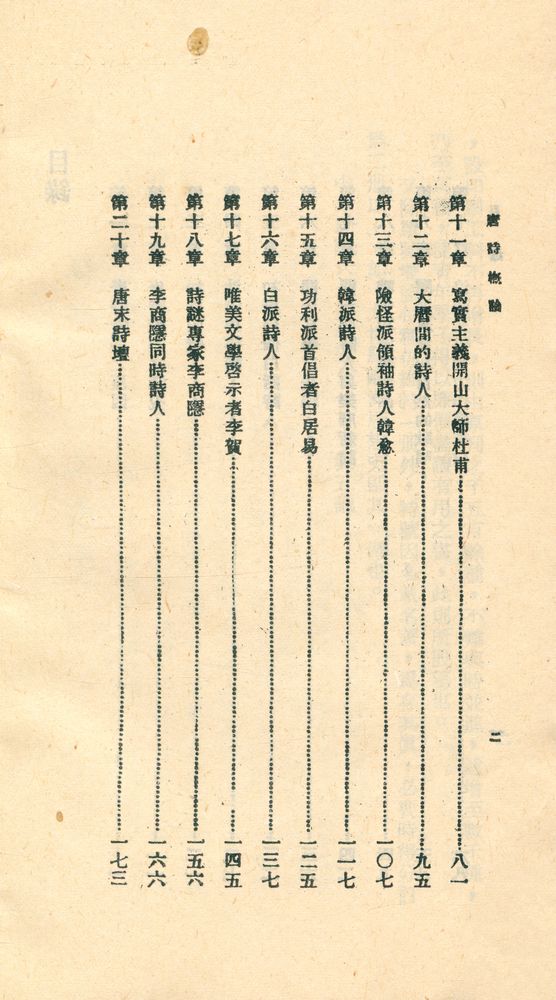 唐詩概論
二
第十一章 寫實主義開山大師杜甫………八一
第十二章 大曆間的詩人………九五
第十三章 險怪派領袖詩人韓愈………一〇七
第十四章 韓派詩人………一一七
第十五章 功利派首倡者白居易………一二五
第十六章 白派詩人………一三七
第十七章 唯美文學啓示者李賀………一四五
第十八章 詩謎專家李商隱………一五六
第十九章 李商隱同時詩人………一六六
第二十章 唐末詩壇………一七三